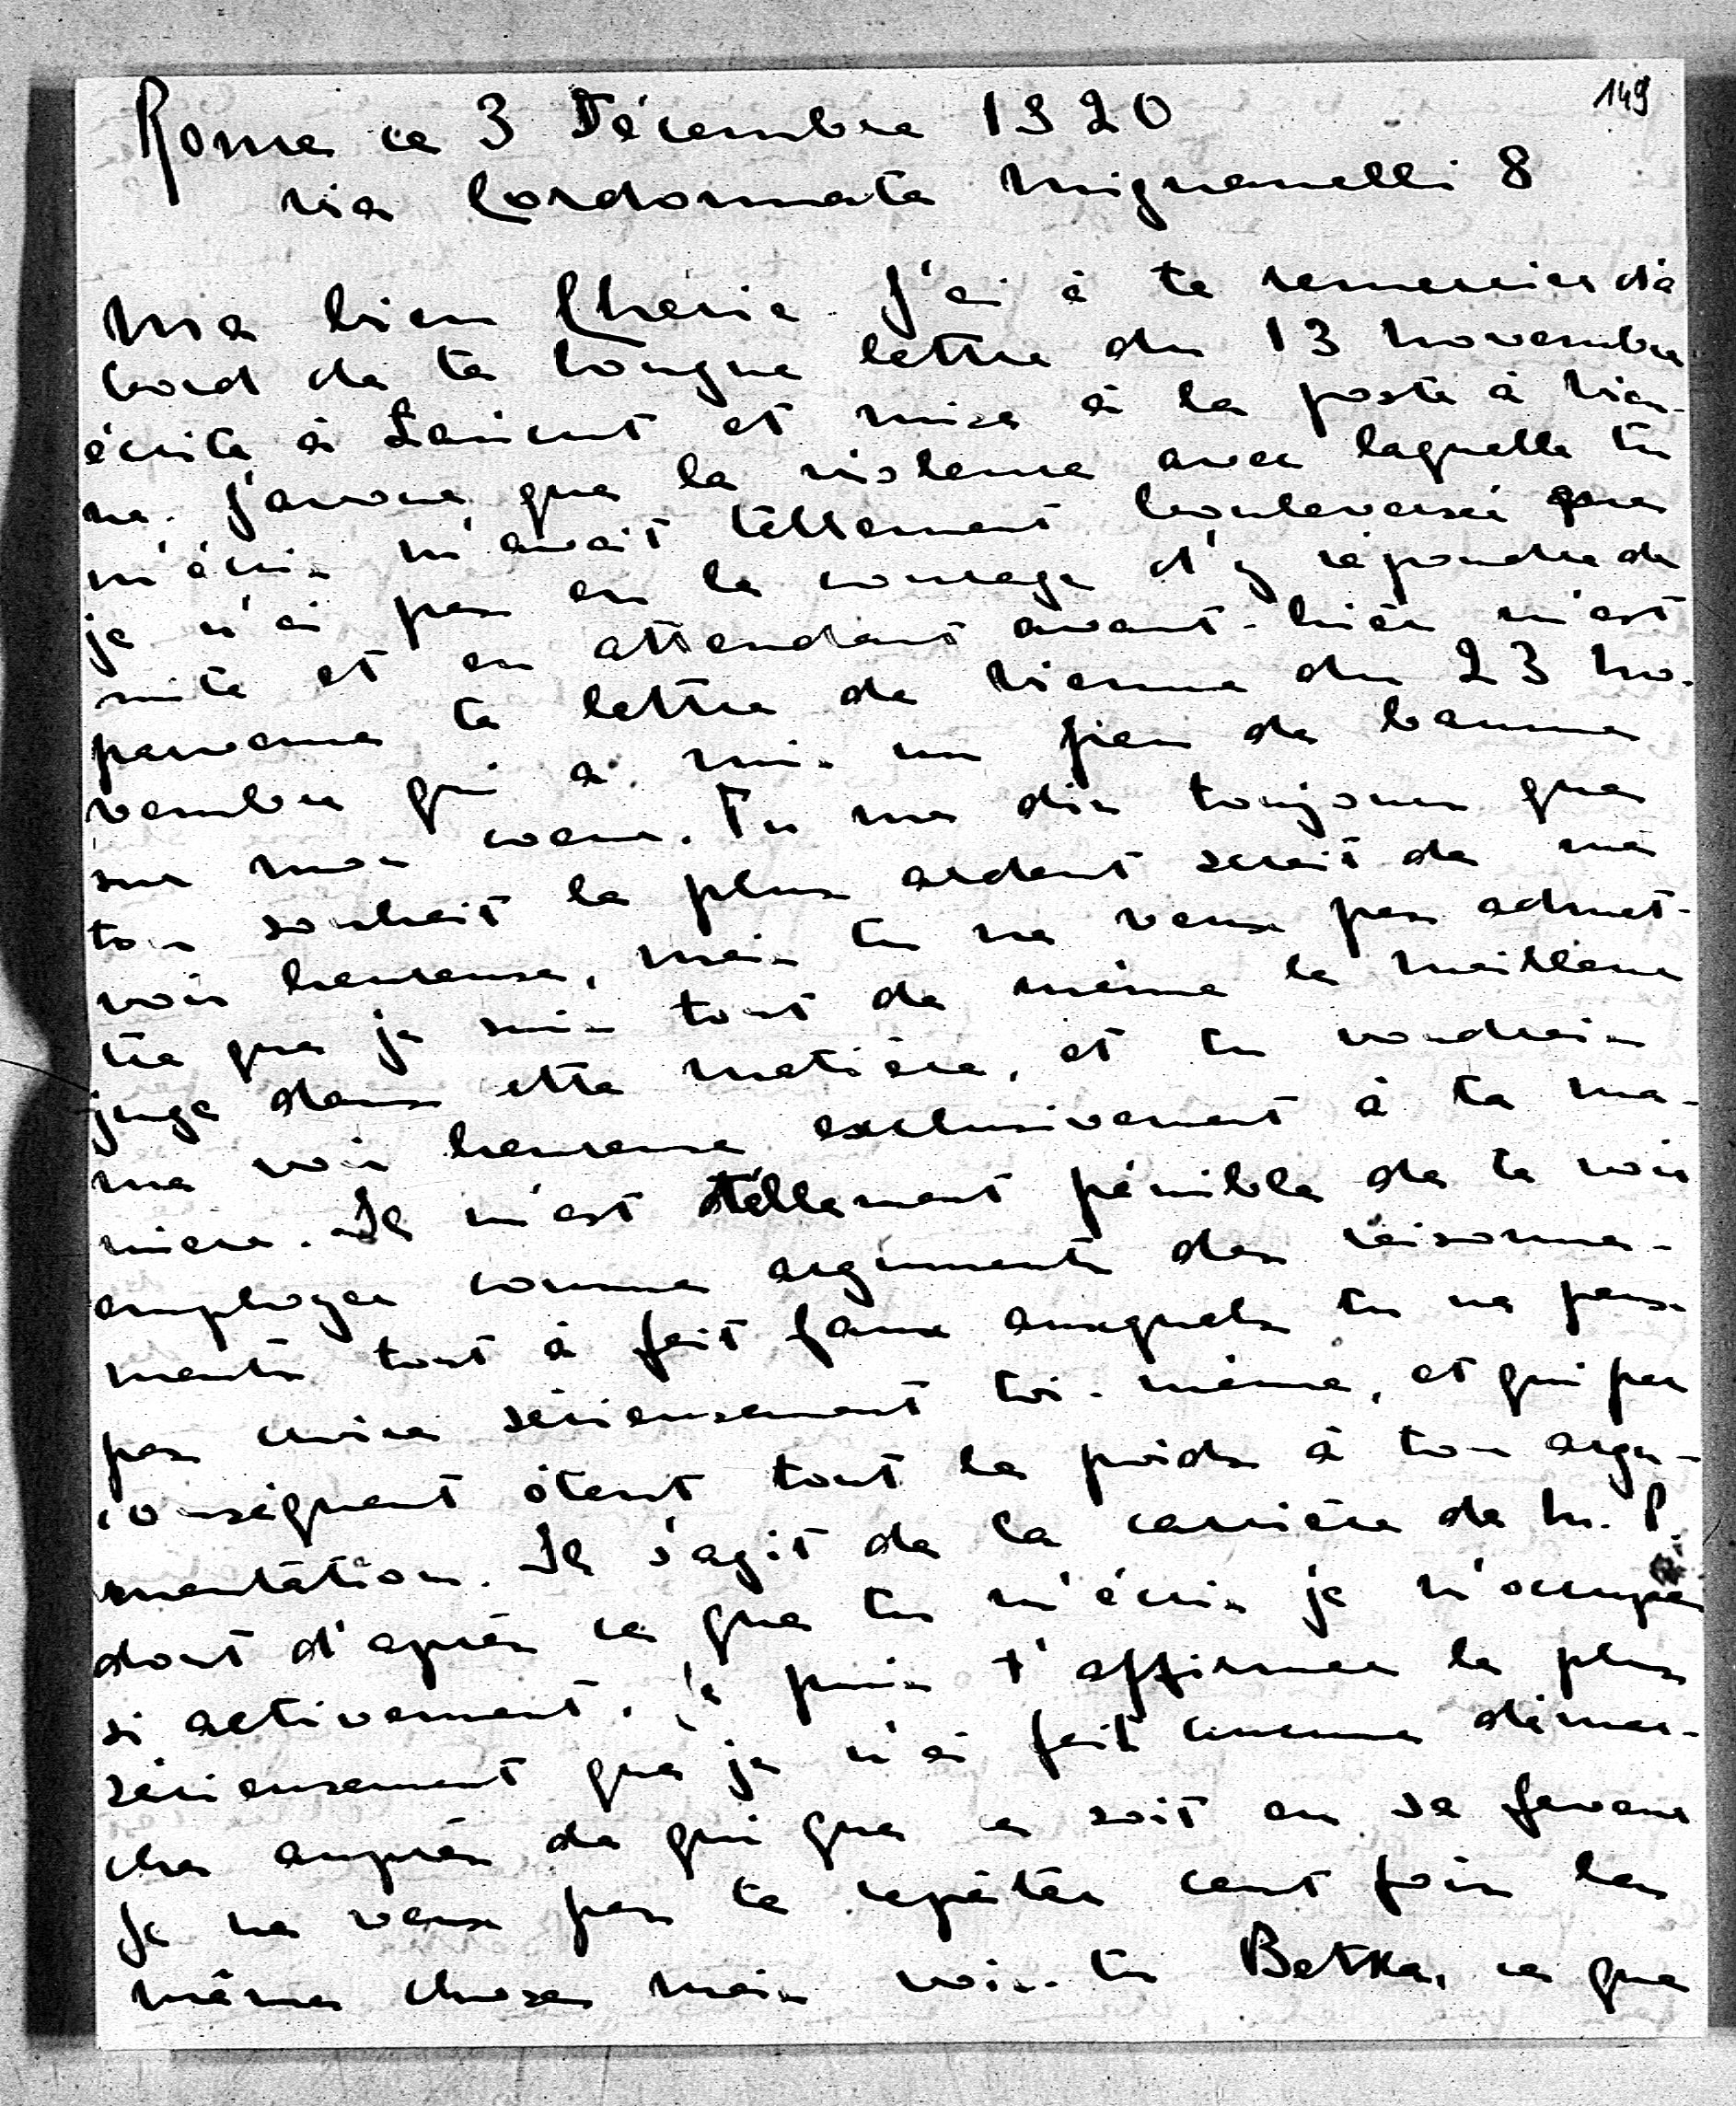 149
Rome ce 3 Décembre 1920
via Cordonnata Mignanelli 8
Ma bien Chérie. J'ai à te remercier d'a
bord de ta longue lettre du 13 Novembre
écrite à Lancut et mise à la poste à Vien-
ne. J'avoue que la violence avec laquelle tu
m'écris m'avait tellement bouleversée que
je n'ai pas eu le courage d'y répondre de
suite et en attendant avant-hier m'est
parvenue ta lettre de Vienne du 23 No-
vembre qui a mis un peu de baume
sur mon coeur. Tu me dis toujours que
ton souhait le plus ardent serait de me
voir heureuse, mais tu ne veux pas admet-
tre que je suis tout de même le meilleur
juge dans cette matière, et tu voudrais
me voir heureuse exclusivement à ta ma-
nière. Il m'est tellement pénible de te voir
employer comme arguments des raisonne-
ments tout à fait faux auxquels tu ne peux
pas croire sérieusement toi-même, et qui par
conséquent ôtent tout le poids à ton argu-
mentation. Il s'agit de la carrière de M. P.
dont d'après ce que tu m'écris je m'occupe
si activement. Je puis t'affirmer le plus
sérieusement que je n'ai fait aucune démar-
che auprès de qui que ce soit en sa faveur
Je ne veux pas te répéter cent fois les
mêmes choses mais vois-tu Betka, ce que